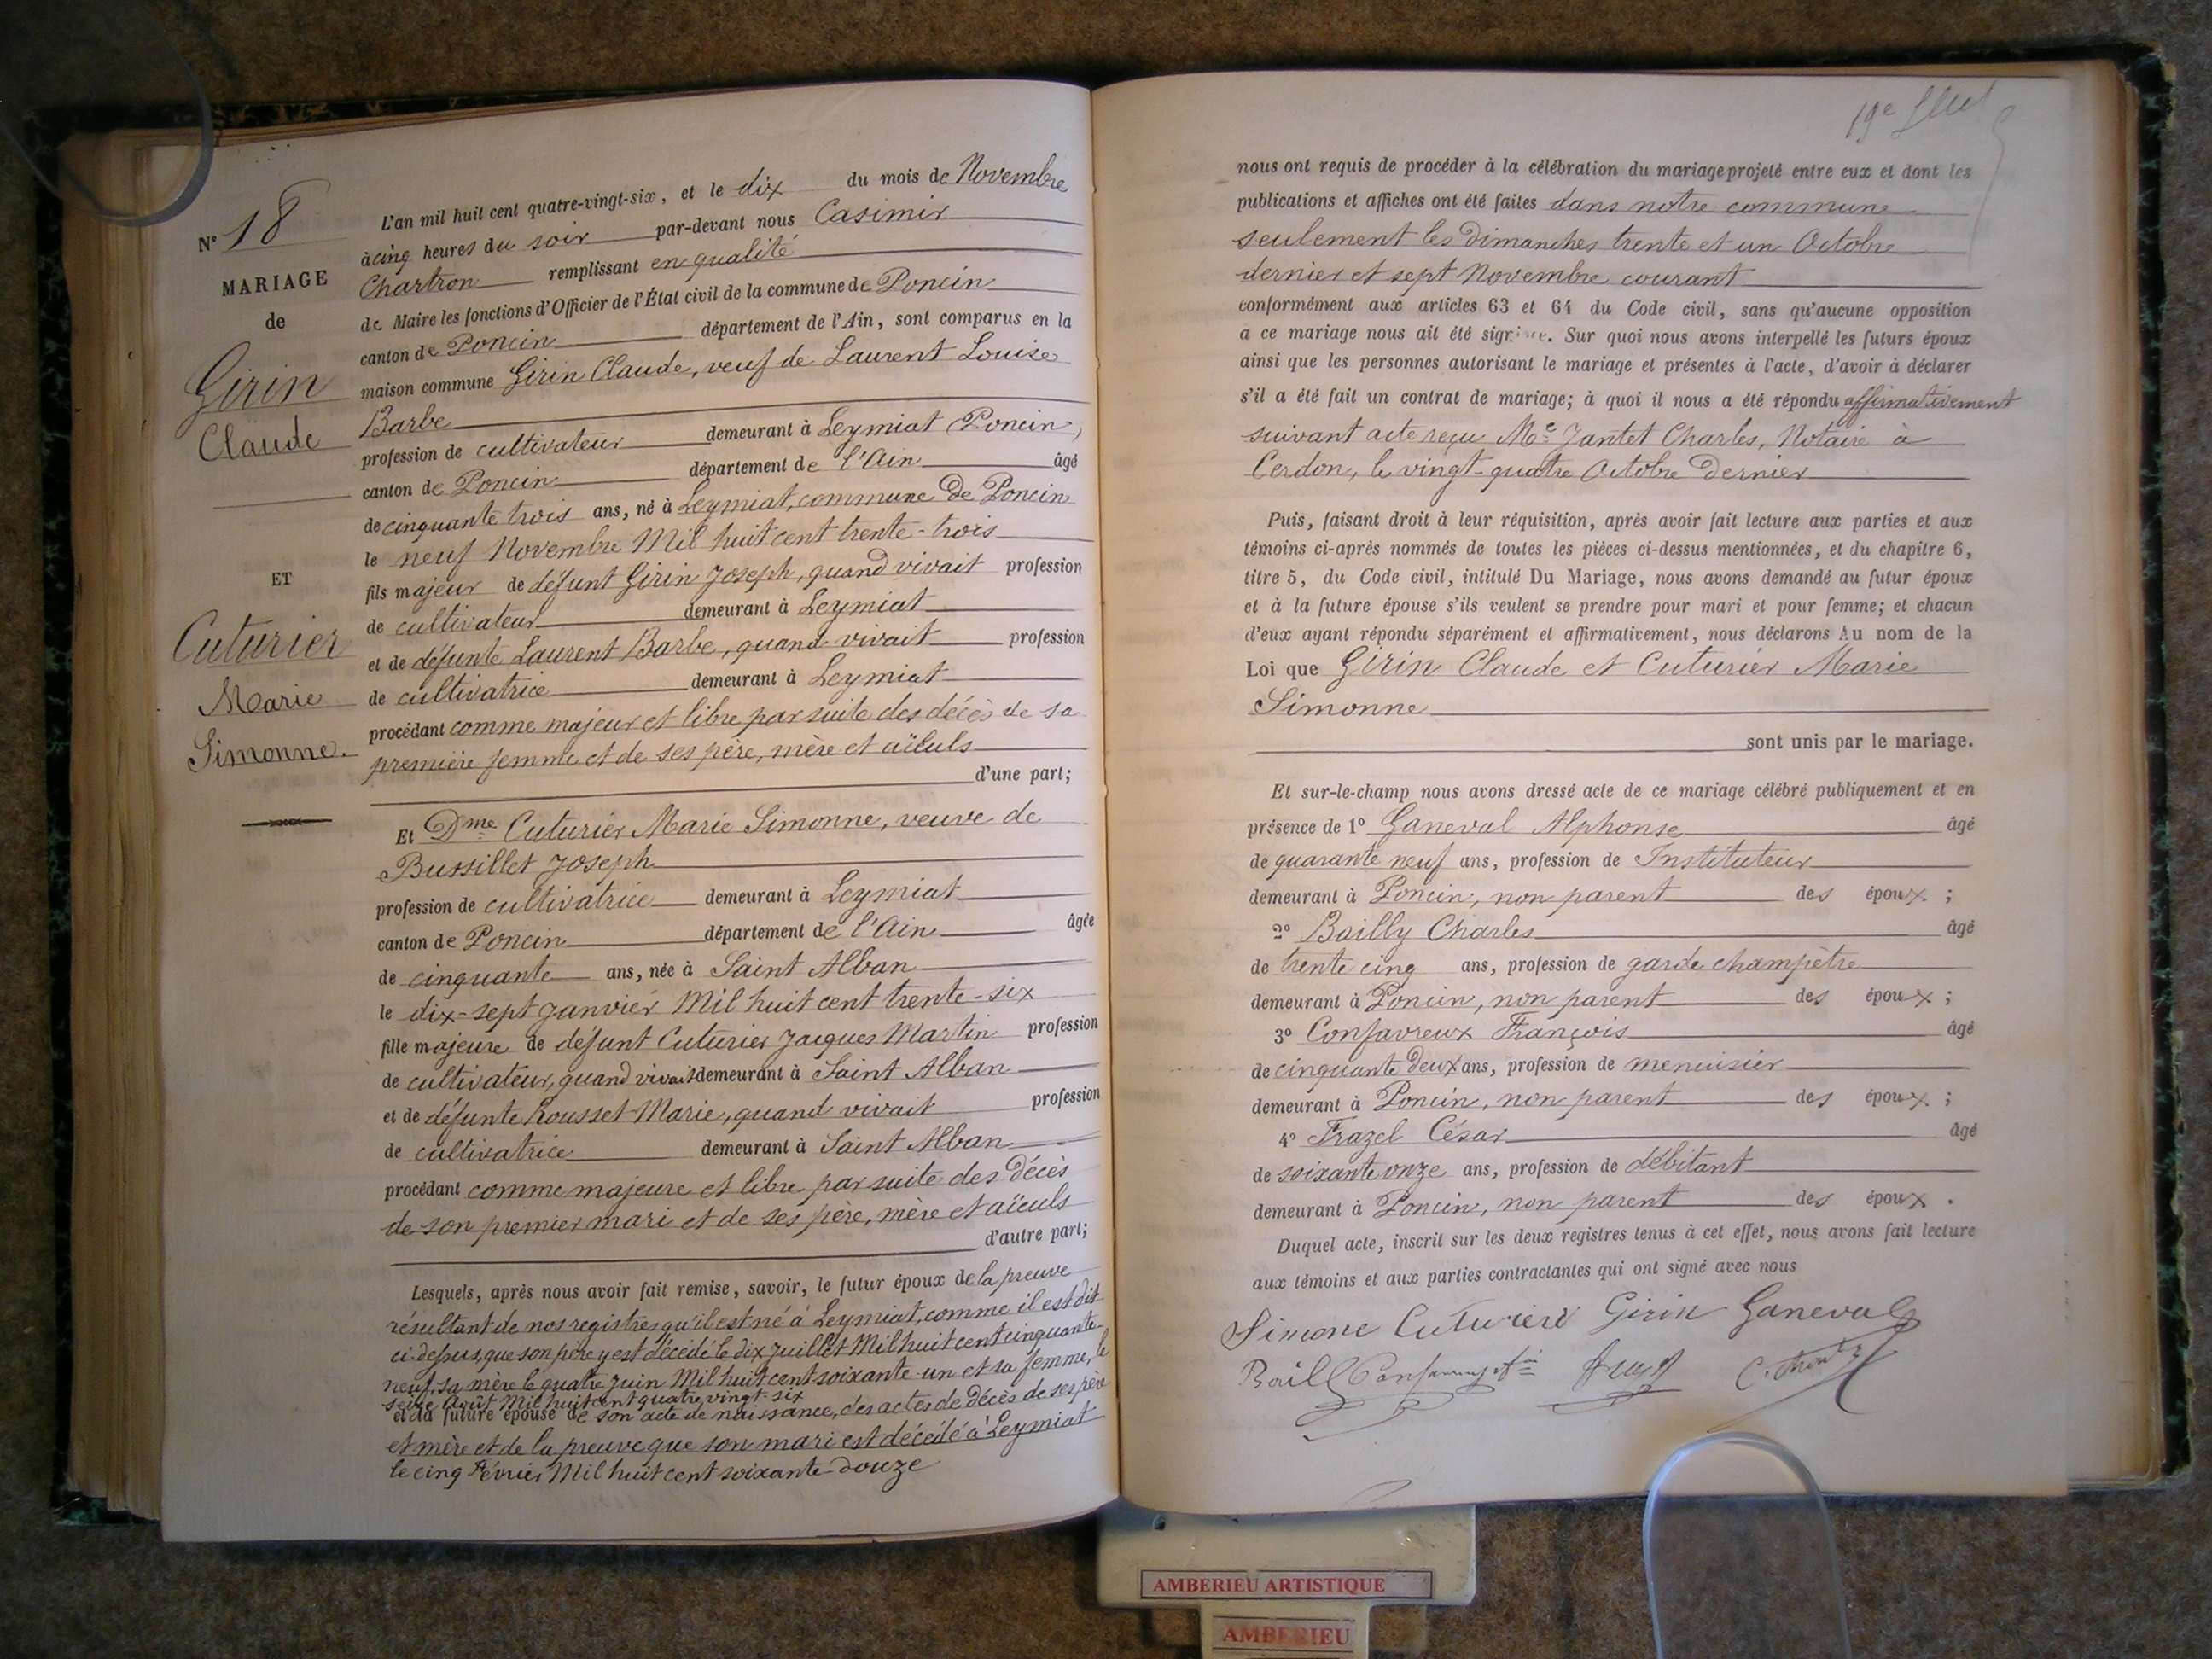 N° 18
MARIAGE
de
Girin
Claude
ET
Cuturier
Marie
Simonne.
L'an mil huit cent quatre-vingt-six, et le dix du mois de Novembre
à cinq heures du soir par-devant nous Casimir
Chartron remplissant en qualité
de Maire les fonctions d'Officier de l'État civil de la commune de Poncin
canton de Poncin département de l'Ain, sont comparus en la
maison commune Girin Claude, veuf de Laurent Louise
Barbe
profession de cultivateur demeurant à Leymiat (Poncin)
canton de Poncin département de l'Ain âgé
de cinquante trois ans, né à Leymiat, commune de Poncin
le neuf Novembre Mil huit cent trente-trois
fils majeur de défunt Girin Joseph, quand vivait profession
de cultivateur demeurant à Leymiat
et de défunte Laurent Barbe, quand vivait profession
de cultivatrice demeurant à Leymiat
procédant comme majeur et libre par suite des décès de sa
première femme et de ses père, mère et aïeuls
d'une part;
Et Dme Cuturier Marie Simonne, veuve de
Bussillet Joseph
profession de cultivatrice demeurant à Leymiat
canton de Poncin département de l'Ain âgée
de cinquante ans, née à Saint Alban
le dix-sept Janvier Mil huit cent trente-six
fille majeure de défunt Cuturier Jacques Martin profession
de cultivateur, quand vivait demeurant à Saint Alban
et de défunte Rousset Marie, quand vivait profession
de cultivatrice demeurant à Saint Alban
procédant comme majeure et libre par suite des décès
de son premier mari et de ses père, mère et aïeuls
d'autre part;
Lesquels, après nous avoir fait remise, savoir, le futur époux de la preuve
résultant de nos registres qu'il est né à Leymiat, comme il est dit
ci-dessus, que son père y est décédé le dix Juillet Mil huit cent cinquante-
neuf, sa mère le quatre Juin Mil huit cent soixante-un et sa femme, le
seize Août Mil huit cent quatre vingt-six
et la future épouse de son acte de naissance, des actes de décès de ses père
et mère et de la preuve que son mari est décédé à Leymiat
le cinq Février Mil huit cent soixante-douze
19e
nous ont requis de procéder à la célébration du mariage projeté entre eux et dont les
publications et affiches ont été faites dans notre commune
seulement les Dimanches trente et un Octobre
dernier et sept Novembre courant
conformément aux articles 63 et 64 du Code civil, sans qu'aucune opposition
à ce mariage nous ait été signifiée. Sur quoi nous avons interpellé les futurs époux
ainsi que les personnes autorisant le mariage et présentes à l'acte, d'avoir à déclarer
s'il a été fait un contrat de mariage; à quoi il nous a été répondu affirmativement
suivant acte reçu Me Jantet Charles, Notaire à
Cerdon, le vingt-quatre Octobre dernier
Puis, faisant droit à leur réquisition, après avoir fait lecture aux parties et aux
témoins ci-après nommés de toutes les pièces ci-dessus mentionnées, et du chapitre 6,
titre 5, du Code civil, intitulé Du Mariage, nous avons demandé au futur époux
et à la future épouse s'ils veulent se prendre pour mari et pour femme; et chacun
d'eux ayant répondu séparément et affirmativement, nous déclarons Au nom de la
Loi que Girin Claude et Cuturier Marie
Simonne
sont unis par le mariage.
Et sur-le-champ nous avons dressé acte de ce mariage célébré publiquement et en
présence de 1° Ganeval Alphonse âgé
de quarante neuf ans, profession de Instituteur
demeurant à Poncin, non parent des époux ;
2° Bailly Charles âgé
de trente cinq ans, profession de garde champêtre
demeurant à Poncin, non parent des époux ;
3° Confavreux François âgé
de cinquante deux ans, profession de menuisier
demeurant à Poncin, non parent des époux ;
4° Frazel César âgé
de soixante onze ans, profession de débitant
demeurant à Poncin, non parent des époux .
Duquel acte, inscrit sur les deux registres tenus à cet effet, nous avons fait lecture
aux témoins et aux parties contractantes qui ont signé avec nous
Simone Cuturier Girin Ganeval
AMBERIEU ARTISTIQUE
AMBERIEU